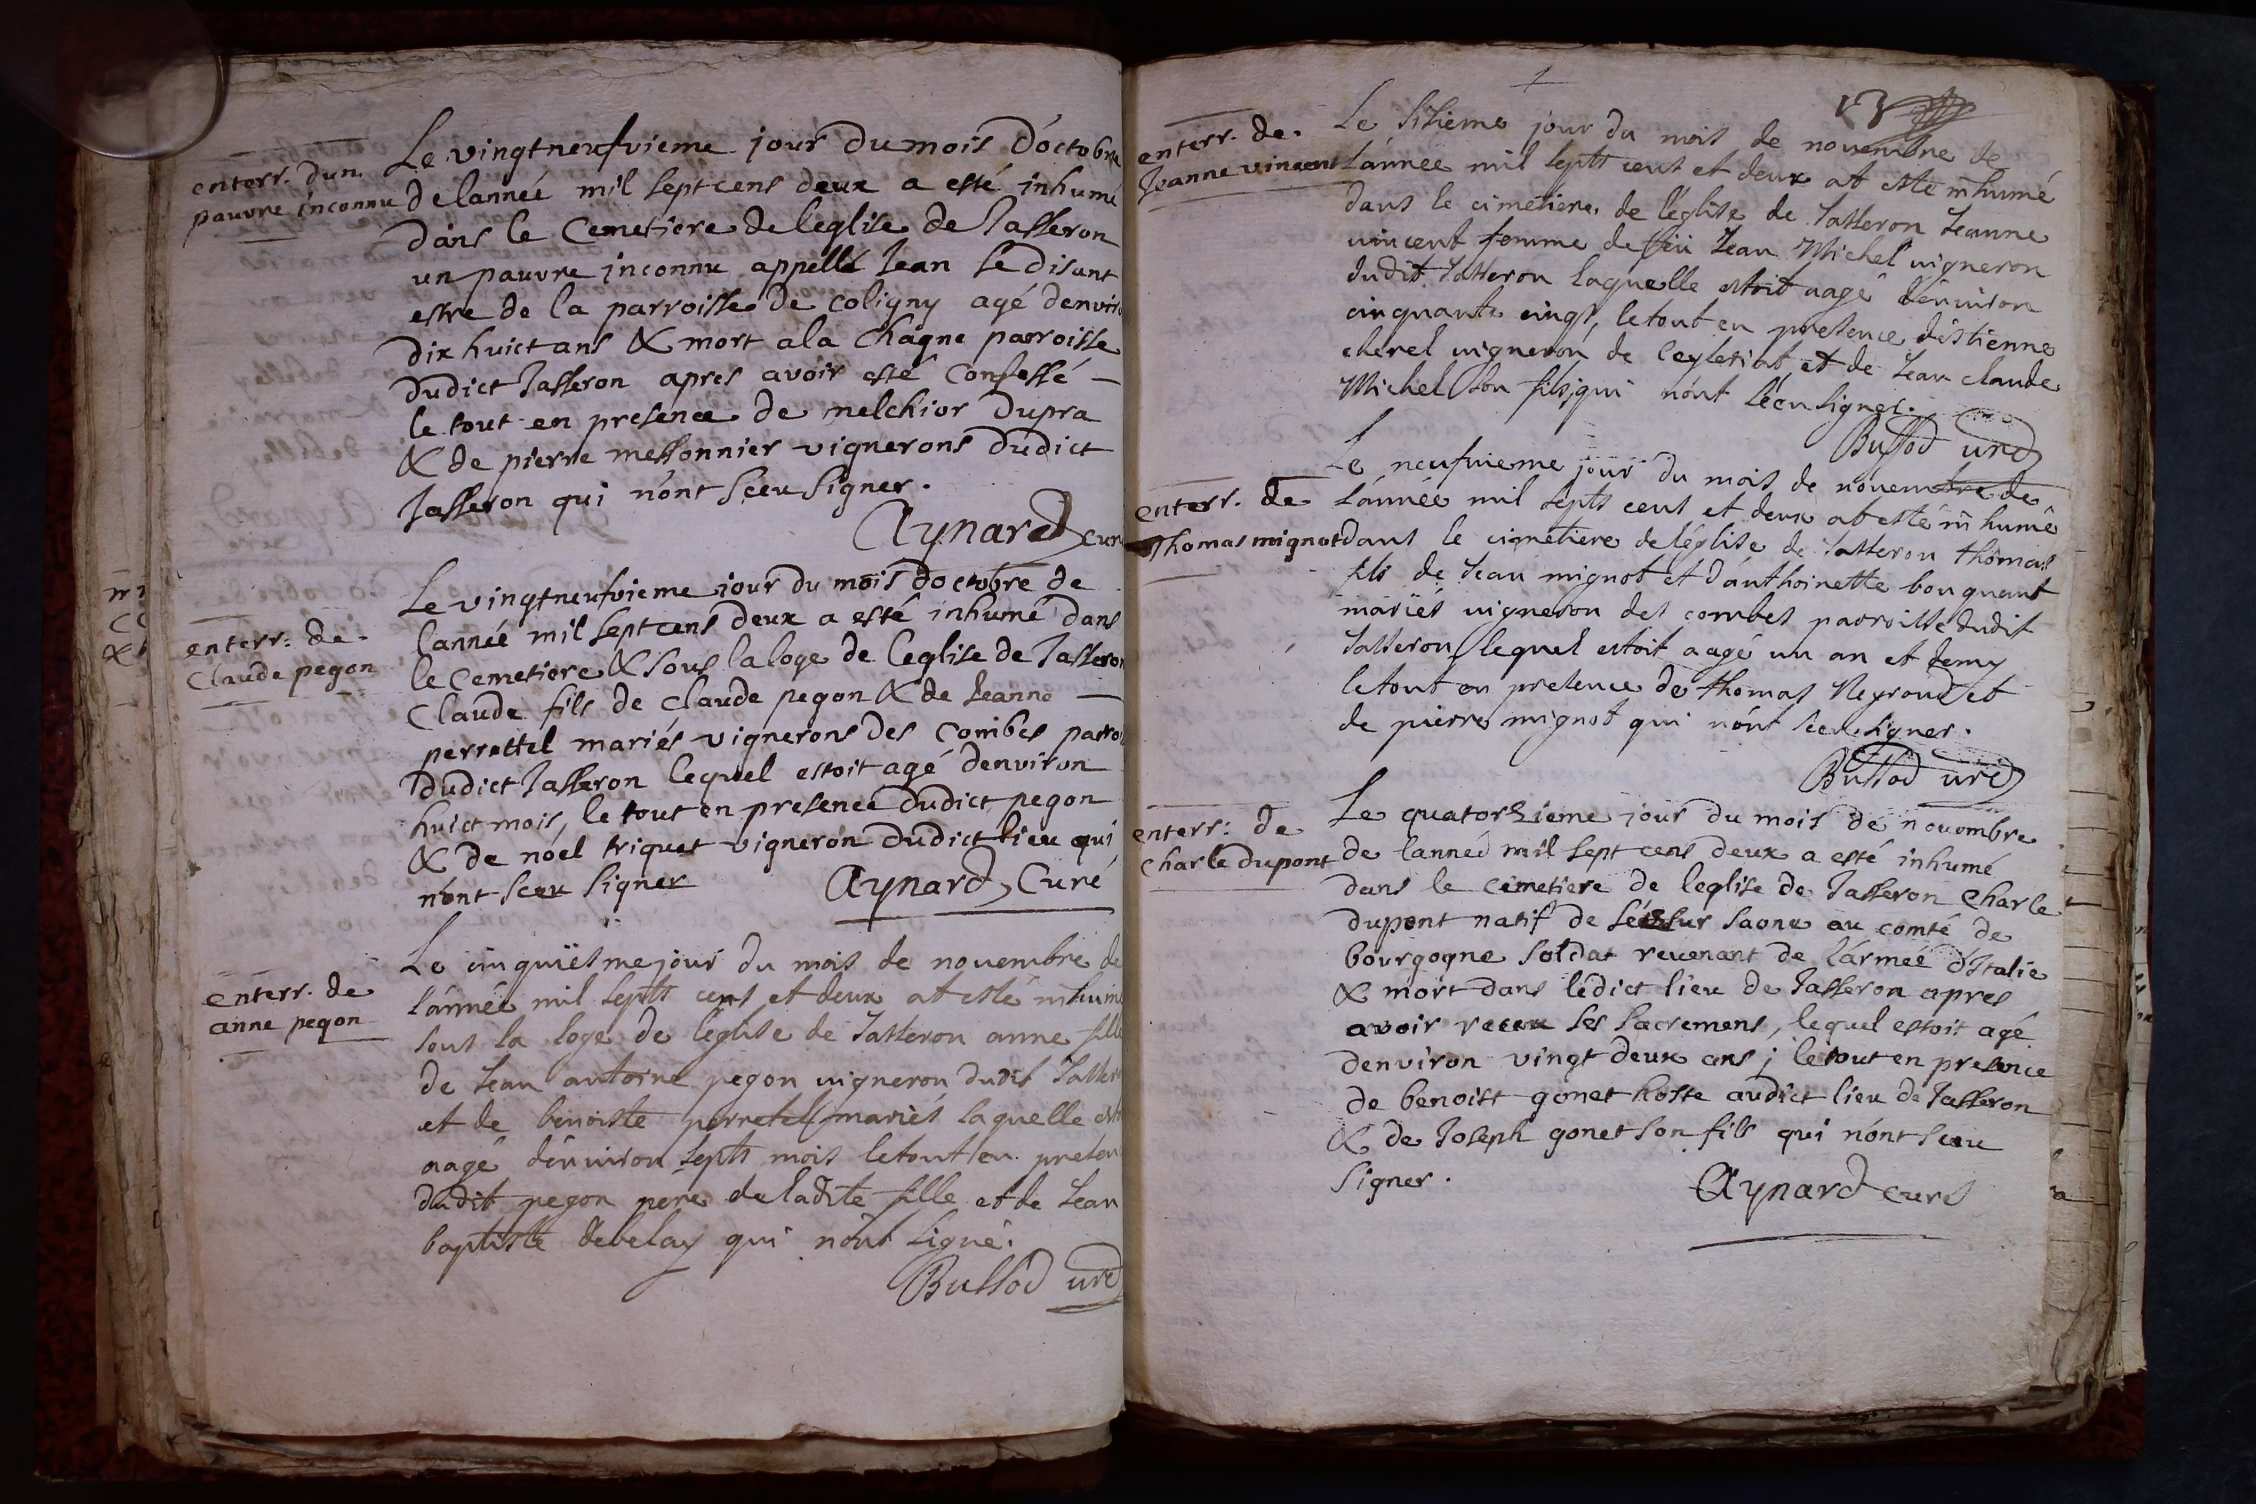 enterr. dun
pauvre inconnu
Le vingtneufvieme jour du mois d'octobre
de lannée mil sept cens deux a esté inhumé
dans le Cemetiere de leglise de Jasseron
un pauvre inconnu appellé Jean se disant
estre de la parroisse de coligny agé denviro
dix huict ans & mort a la Chagne parroisse
dudict Jasseron apres avoir esté confessé
le tout en presence de melchior Dupra
& de pierre messonnier vignerons dudict
Jasseron qui n'ont sceu signer.
Aynard curé
enterr: de
Claude pegon
Le vingtneufvieme jour du mois doctobre de
lannée mil sept cens deux a esté inhumé dans
le cemetiere & sous la loge de leglise de Jasseron
Claude fils de Claude pegon & de Jeanne
perrettel mariés vignerons des Combes parroi
dudict Jasseron lequel estoit agé denviron
huict mois, le tout en presence dudict pegon
& de noel triquet vigneron dudict lieu qui
n'ont sceu signer Aynard Curé
enterr. de
anne pegon
Le cinquiesme jour du mois de novembre de
l'année mil septs cens et deux at esté inhumé
sous la loge de l'eglise de Jasseron anne fille
de Jean antoine pegon vigneron dudit Jasser
et de benoiste perretel mariés laquelle est
aagé d'énviron septs mois le tout en presen
dudit pegon pere de ladite fille et de Jean
baptiste debelay qui n'ont signé.
Bussod curé
13
enterr. de
Jeanne vincent
Le sisieme jour du mois de novembre de
l'année mil septs cent et deux at esté inhumé
dans le cimetiere de l'église de Jasseron Jeanne
vincent femme de feu Jean Michel vigneron
dudit Jasseron laquelle estoit aagé d'énviron
cinquante cinqs, le tout en presence d'éstienne
cherel vigneron de Ceyletiat, et de Jean claude
Michel son fils, qui n'ont sçeu signer.
Bussod curé
enterr. de
Thomas mignot
Le neufvieme jour du mois de novembre de
l'année mil septs cens et deux at esté inhumé
dans le cimetiere de l'église de Jasseron thomas
fils de Jean mignot et d'anthoinette bouquant
mariés vigneron des combes parroisse dudit
Jasseron lequel estoit aagé un an et demy
le tout en presence de thomas Neyroud et
de pierre mignot qui n'ont sceu signer.
Bussod curé
enterr: de
Charle dupont
Le quatorzieme jour du mois de novembre
de lanneé mil sept cens deux a esté inhumé
dans le cimetiere de leglise de Jasseron Charle
dupont natif de sur Saone au comté de
bourgogne soldat revenant de l'armeé d'Italie
& mort dans lédict lieu de Jasseron apres
avoir receu ses sacremens, lequel estoit agé
denviron vingt deux ans; le tout en presence
de benoist gonet hoste audict lieu de Jasseron
& de Joseph gonet son fils qui n'ont sceu
signer.
Aynard curé